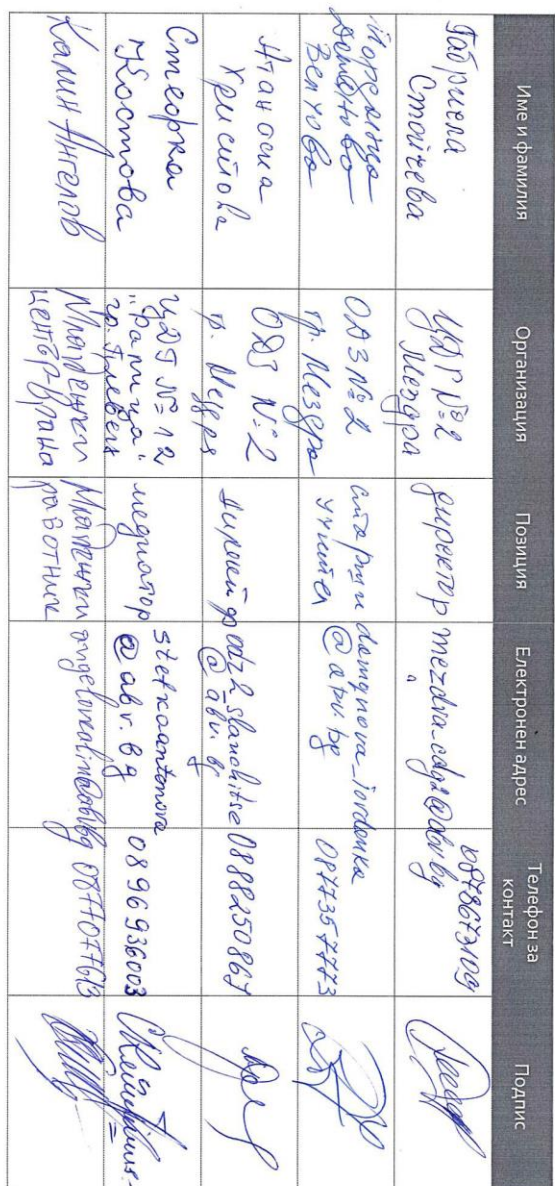 Име и фамилия
Организация
Позиция
Електронен адрес
Телефон за контакт
Подпис
Габриела
Стойчева
ЦДГ №2
Мездра
директор
mezdra_cdg2@abv.bg
Йорданка
Дамянова
Венкова
ОДЗ №2
гр. Мездра
старши
учител
damqnova_iordanka
@abv.bg
0877357773
Атанаска
Христова
ОДЗ №2
гр. Мездра
директор
odzh_slanchitse
@abv.bg
0888250867
Стефка
Костова
ЦДГ №12
"Ралица"
гр. Плевен
медиатор
stefkaantonova
@abv.bg
0896936003
Калин Ангелов
Младежки
център-Враца
Младежки
работник
angelovkalin@abv.bg